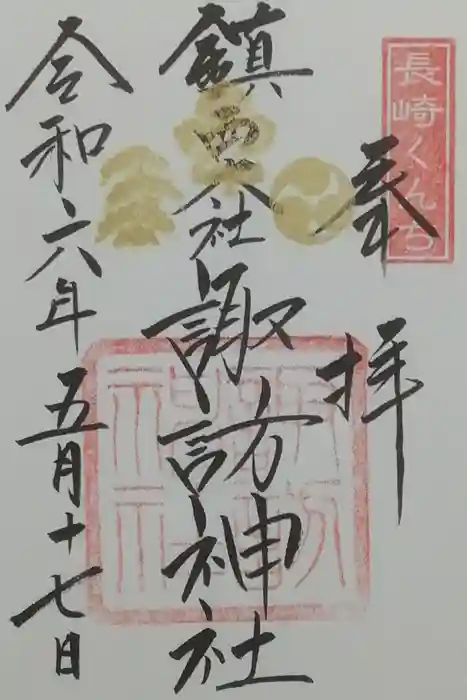 長崎くんち
奉拝
鎮西大社
諏訪神社
令和六年五月十七日